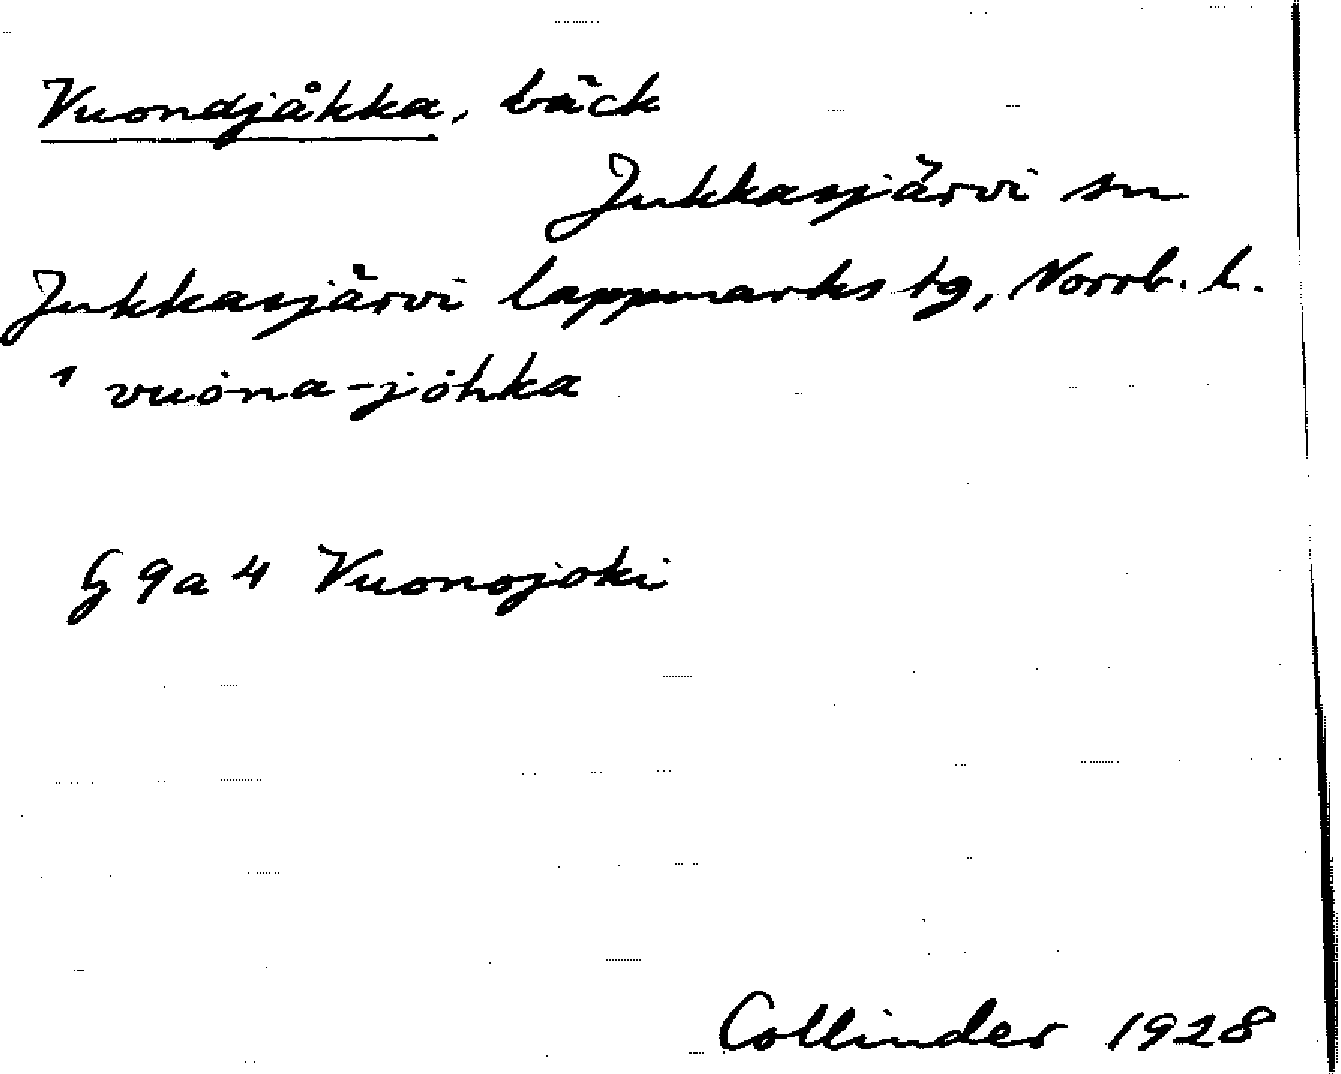 Vuondjåkka, bäck
Jukkasjärvi sn
Jukkasjärvi lappmarks tg, Norrb. l.
1 vuona-johka
§ 9a 4 Vuonojoki
Collinder 1928